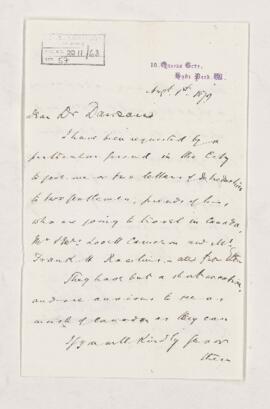 2211/63
57
10, Queens Gate,
Hyde Park. W.
Augt. 1st. 1879
Dear Dr Dawson
I have been requested by a
particular friend in the City
to give one or two letters of Introduction
to two gentlemen, friends of his,
who are going to travel in Canada,
Mr Lovett Cameron and Mr
Frank
They have but a short vacation,
and are anxious to see as
much of Canada as they can
If you will kindly favor
them